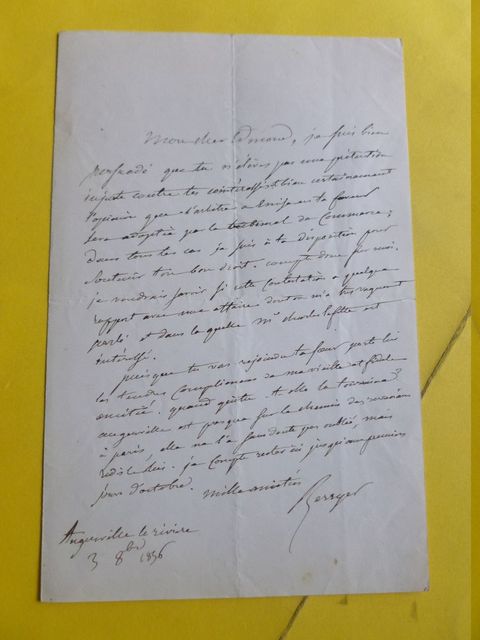 Mon cher Edmond, je suis bien
persuadé que tu n'élèves pas une prétention
injuste contre tes cointéressés, bien certainement
l'opinion que l'arbitre a émise en ta faveur
sera adoptée par le tribunal de Commerce;
dans tous les cas je suis à ta disposition pour
soutenir ton bon droit. compte donc sur moi.
je voudrais savoir si cette contestation a quelque
rapport avec une affaire dont on m'a très vaguement
parlé et dans laquelle Mr charles laffitte est
intéressé.
puisque tu vas rejoindre ta sœur porte lui
les tendres de ma vieille et fidèle
amitié. quand quitte-t-elle la touraine?
augerville est presque sur le chemin des
à paris, elle ne l'a sans doute pas oublié, mais
redis le lui. je compte rester ici jusqu'aux premiers
jours d'octobre. mille amitiés
Berryer
Augerville la rivière
3 8bre 1856